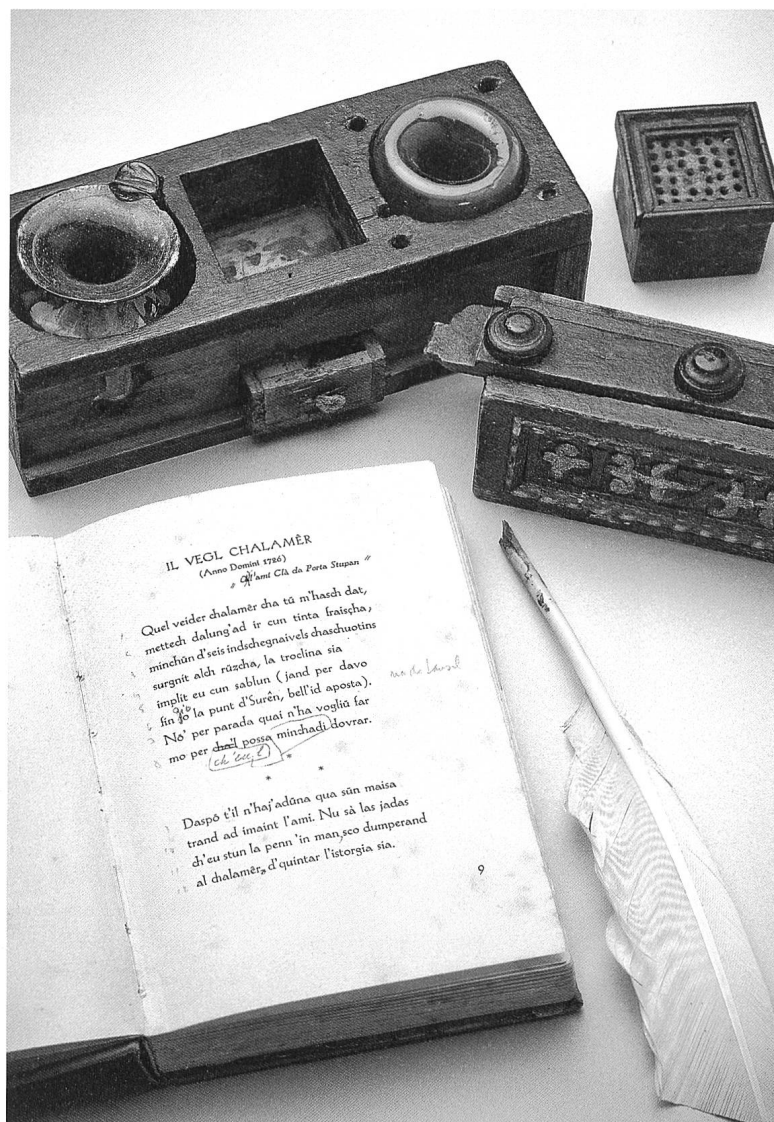 IL VEGL CHALAMÊR
(Anno Domini 1726)
„ l'ami Clà da Porta Stupan "
Quel veider chalamêr cha tü m'hasch dat,
mettech dalung'ad ir cun tinta fraischa,
minchün d'seis indschegnaivels chaschuotins
surgnit alch rüzcha, la troclina sia
implit eu cun sablun (jand per davo
fin giò la punt d'Surên, bell'id aposta).
Nò' per parada quai n'ha vogliü far
mo per cha'l possa minchadi dovrar.
ch'eu, l
* * *
Daspö t'il n'haj adüna qua sün maisa
trand ad imaint l'ami. Nu sà las jadas
ch'eu stun la penn'in man, sco dumperand
al chalamêr, d'quintar l'istorgia sia.
9